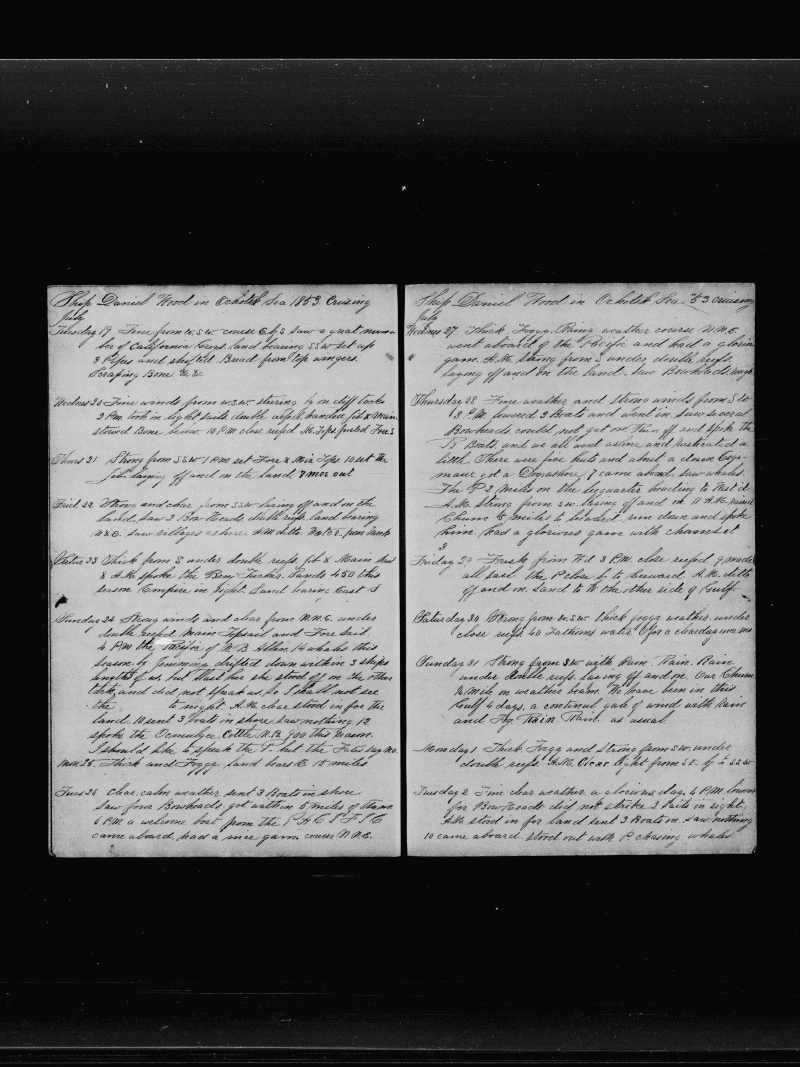 Ship Daniel Wood in Ochotsk Sea 1853. Cruising
July
Tuesday 19 Fine from W.S.W. course E. by S saw a great num
ber of California land bearing SSW set up
3 Pipes and Bread from top wingers.
Scraping Bone &c &c
Wednes 20 Fine winds from W.S.W. stering by on diff tacks
2 P.M. took in light sails double reefed, handed jib & Main
stowed Bone below 10 P.M. close reefd M. Tops furled Fores
Thurs 21 Strong from SSW 1 P.M. set Fore & Miz Tps. 10 set the
Jib laying off and on the land. 7 mos out
Frid 22 Strong and clear from S.S.W. laying off and on the
land. saw 3 Bowheads, double reefs. land bearing
N & E. saw villages ashore A.M. ditto.
Satur 23 Thick from S under double reefs Jib & Main
8 A.M. spoke the Ben Tucker. Sands 450 this
season Empire in sight. Land baring East S
Sunday 24 Strong winds and clear from N.N.E. under
double reefed Main Topsail and Fore Sail
4 P.M. the Pacific of N.B. Allen. 14 whales this
season. by Jemmima drifted down within 3 ships
lengths of us. but blast her she stood off on the other
tack, and did not speak us. So I shall not see
the to night. A.M. clear stood in for the
land. 10 sent 3 boats in shore saw nothing. 12
spoke the Ocmulgee Cottle N.B. 900 this season.
I should like to speak the P. but the Fates say No.
Mon 25. Thick and Foggy. land bears E. 15 miles
Tues 26 clear. calm weather, sent 3 Boats in shore
saw four Bowheads got within 5 miles of them
6 P.M. a welcome boat from the PACIFIC
came aboard. had a nice gam. course N.N.E.
Ship Daniel Wood in Ochotsk Sea 53 Cruising
July
Wednes 27 Thick. Foggy. weather course N.N.E.
went aboard of the Pacific and had a glorious
gam. A.M. Strong from S under double reefs,
laying off and on the land. saw Bowheads
Thursday 28 Fine weather and strong winds from S W
3 P.M. lowered 3 Boats and went in saw several
Bowheads, could not get on. Two off and spoke the
Ps Boats, and we all went ashore and rusticated a
little. There were five huts and about a dozen Esqu
maux, got a Dog ashore, 7 came aboard. saw whales.
The P 2 miles on the lee quarter heading to
A.M. Strong from S.W. laying off and on. 11 A.M. raised
Chum 5 miles to leeward run down and spoke
him, had a glorious gam with
3
Friday 29 Fresh from Wd 3 P.M. close reefed 9 made
all sail. the P close by to leeward. A.M. ditto
off and on. Land to W. the other side of Gulf
Saturday 30 Strong from W.S.W. thick foggy weather, under
close reefs 40 Fathoms water. O for a clear day once mo
Sunday 31 Strong from SW with Rain. Rain. Rain
under double reefs. laying off and on. Our Chum
mile on weather beam. We have been in this
Gulf 4 days, a continual gale of wind with Rain
and Fog. Rain. Rain. as usual
Monday 1 Thick Foggy and strong from S.W. under
double reefs. A.M. Clear Light from S.E. by S S.S.W
Tuesday 2 Fine clear weather, a glorious day. 4 P.M. lowered
for BowHeads did not strike. 2 sails in sight.
A.M. stood in for land sent 3 Boats in saw nothing
10 came aboard. stood out with P. chasing whales